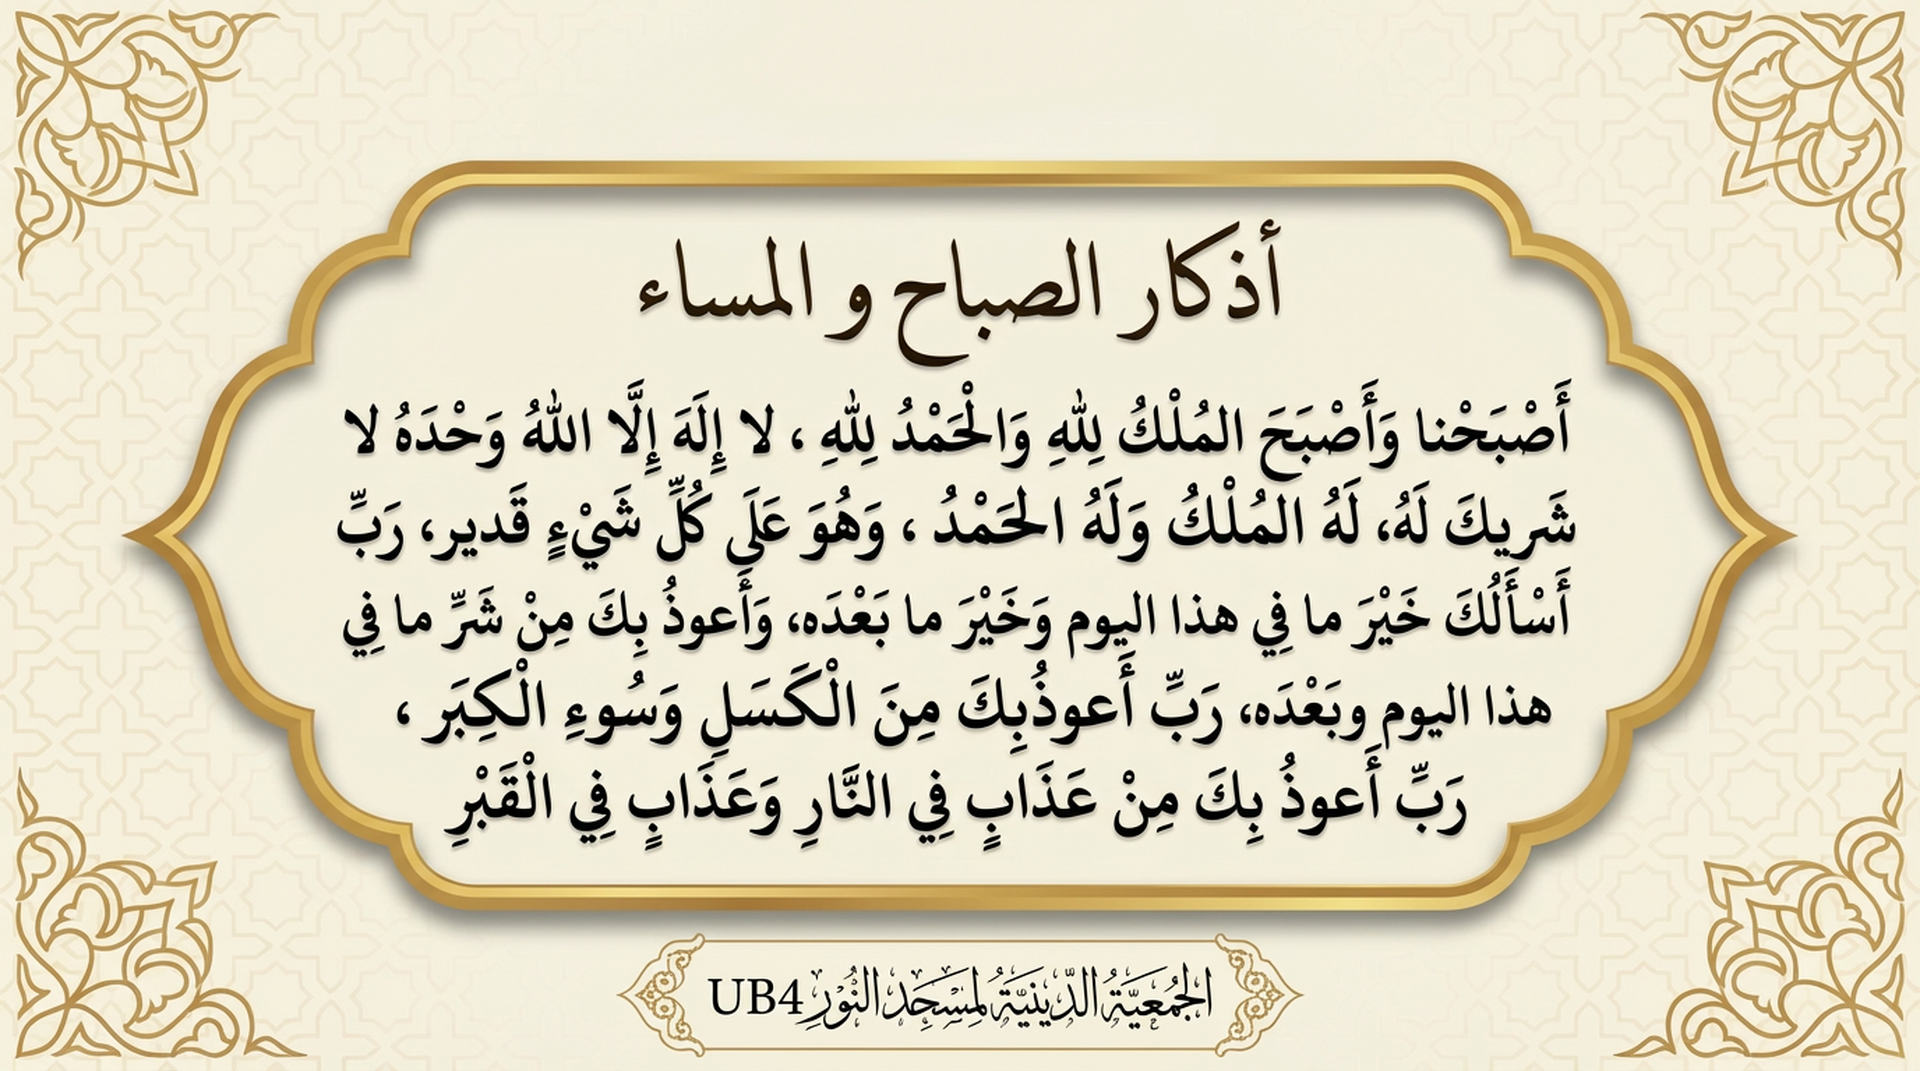 أذكار الصباح و المساء
أَصْبَحْنا وَأَصْبَحَ المُلْكُ لِلّٰهِ وَالْحَمْدُ لِلّٰهِ ، لا إِلَهَ إِلَّا اللّٰهُ وَحْدَهُ لا
شَريكَ لَهُ، لَهُ المُلْكُ وَلَهُ الحَمْدُ ، وَهُوَ عَلَى كُلِّ شَيْءٍ قَدير، رَبِّ
أَسْأَلُكَ خَيْرَ ما فِي هذا اليوم وَخَيْرَ ما بَعْدَه، وَأَعوذُ بِكَ مِنْ شَرِّ ما فِي
هذا اليوم وبَعْدَه، رَبِّ أَعوذُبِكَ مِنَ الْكَسَلِ وَسُوءِ الْكِبَر ،
رَبِّ أَعوذُ بِكَ مِنْ عَذَابٍ فِي النَّارِ وَعَذَابٍ فِي الْقَبْرِ
الجَمْعِيَّةُ الدِّينِيَّةُ لِمَسْجِدِ النُّوْرِ UB4